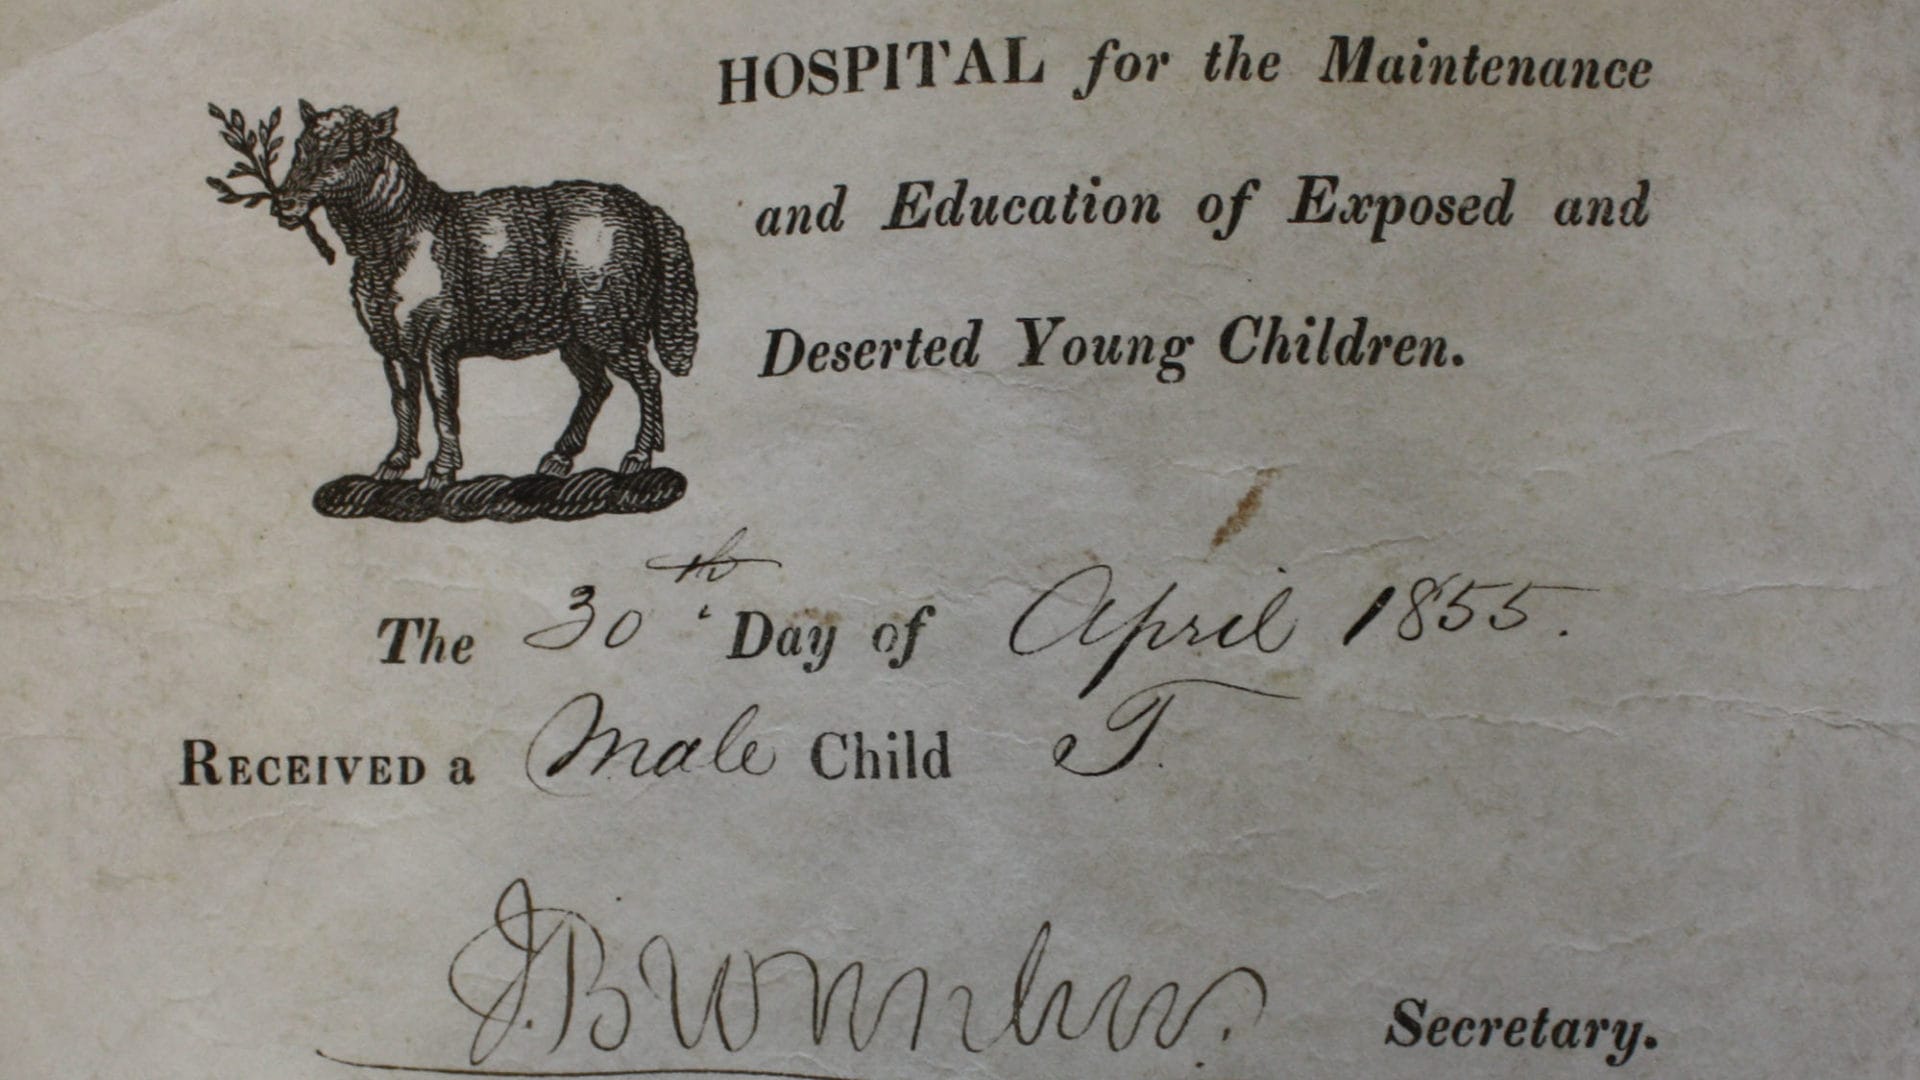 HOSPITAL for the Maintenance
and Education of Exposed and
Deserted Young Children.
The 30th Day of April 1855.
RECEIVED a Male Child T.
J. Brownlow.
Secretary.